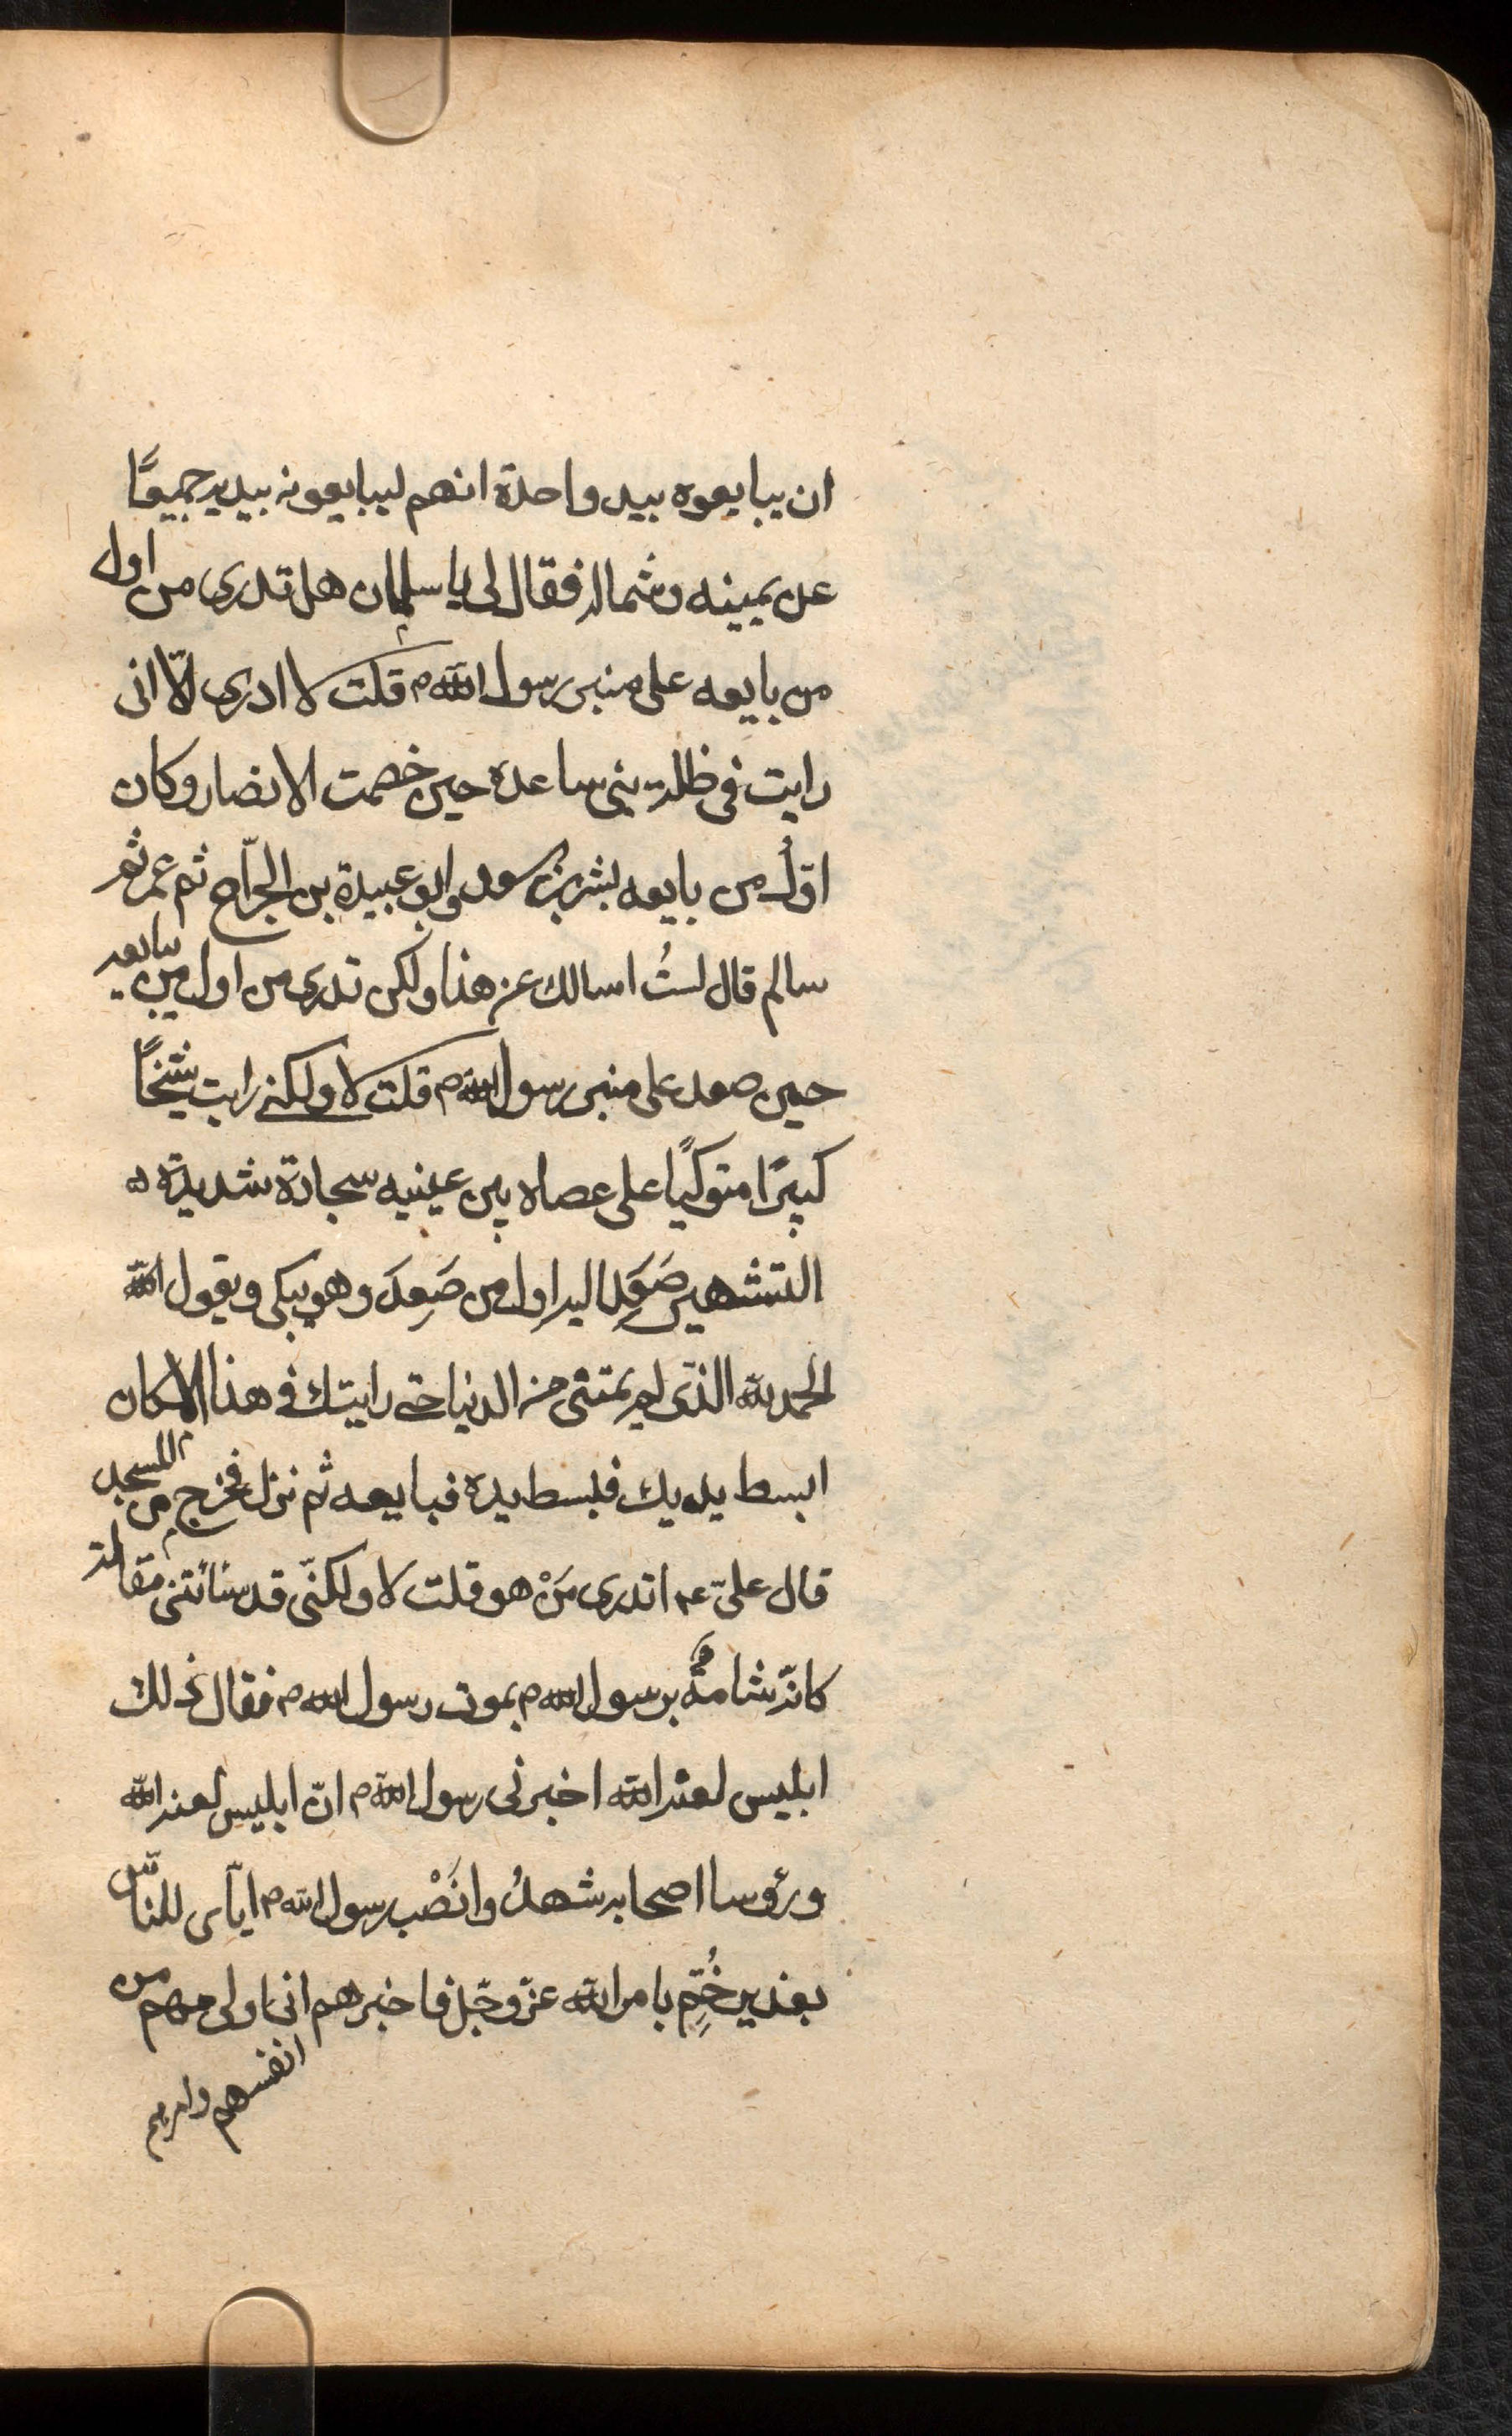 ان يبايعوه بيد واحدة انهم ليبايعونه بيديه جميعًا
عن يمينه وشماله فقال لى يا سلمان هل تدرى من اول
من بايعه على منبر رسول الله ص قلت لا ادرى الّا انى
رايت فى ظلة بنى ساعدة حين خصمت الانصار وكان
اوّل من بايعه بشر بن سعد وابو عبيدة بن الجرّاح ثم عمر ثم
سالم قال لستُ اسالك عن هذا ولكن تدرى من اول من بايعه
حين صعد على منبر رسول الله ص قلت لا ولكنى رايت شيخًا
كبيرًا متوكيًا على عصاه بين عينيه سجادة شديدة
التشهير صَعِدَ اليه اول من صَعِدَ وهو يبكى ويقول الله
الحمد لله الذى لم يمتنى من الدنيا حتى رايتك فى هذا المكان
ابسط يديك فبسط يده فبايعه ثم نزل فخرج من المسجد
قال علىّ ع اتدرى مَنْ هو قلت لا ولكنّى قد سائتنى مقالته
كانّه شامتٌ برسول الله ص بموت رسول الله ص فقال ذلك
ابليس لعنه الله اخبرنى رسول الله ص انّ ابليس لعنه الله
ورؤسا اصحابه شهدُوا نَصْب رسول الله ص ايّاى للنّاس
بغدير خُمّ بامر الله عزّ وجّل فاخبرهم انى اولى بهم من
انفسهم وامرهم